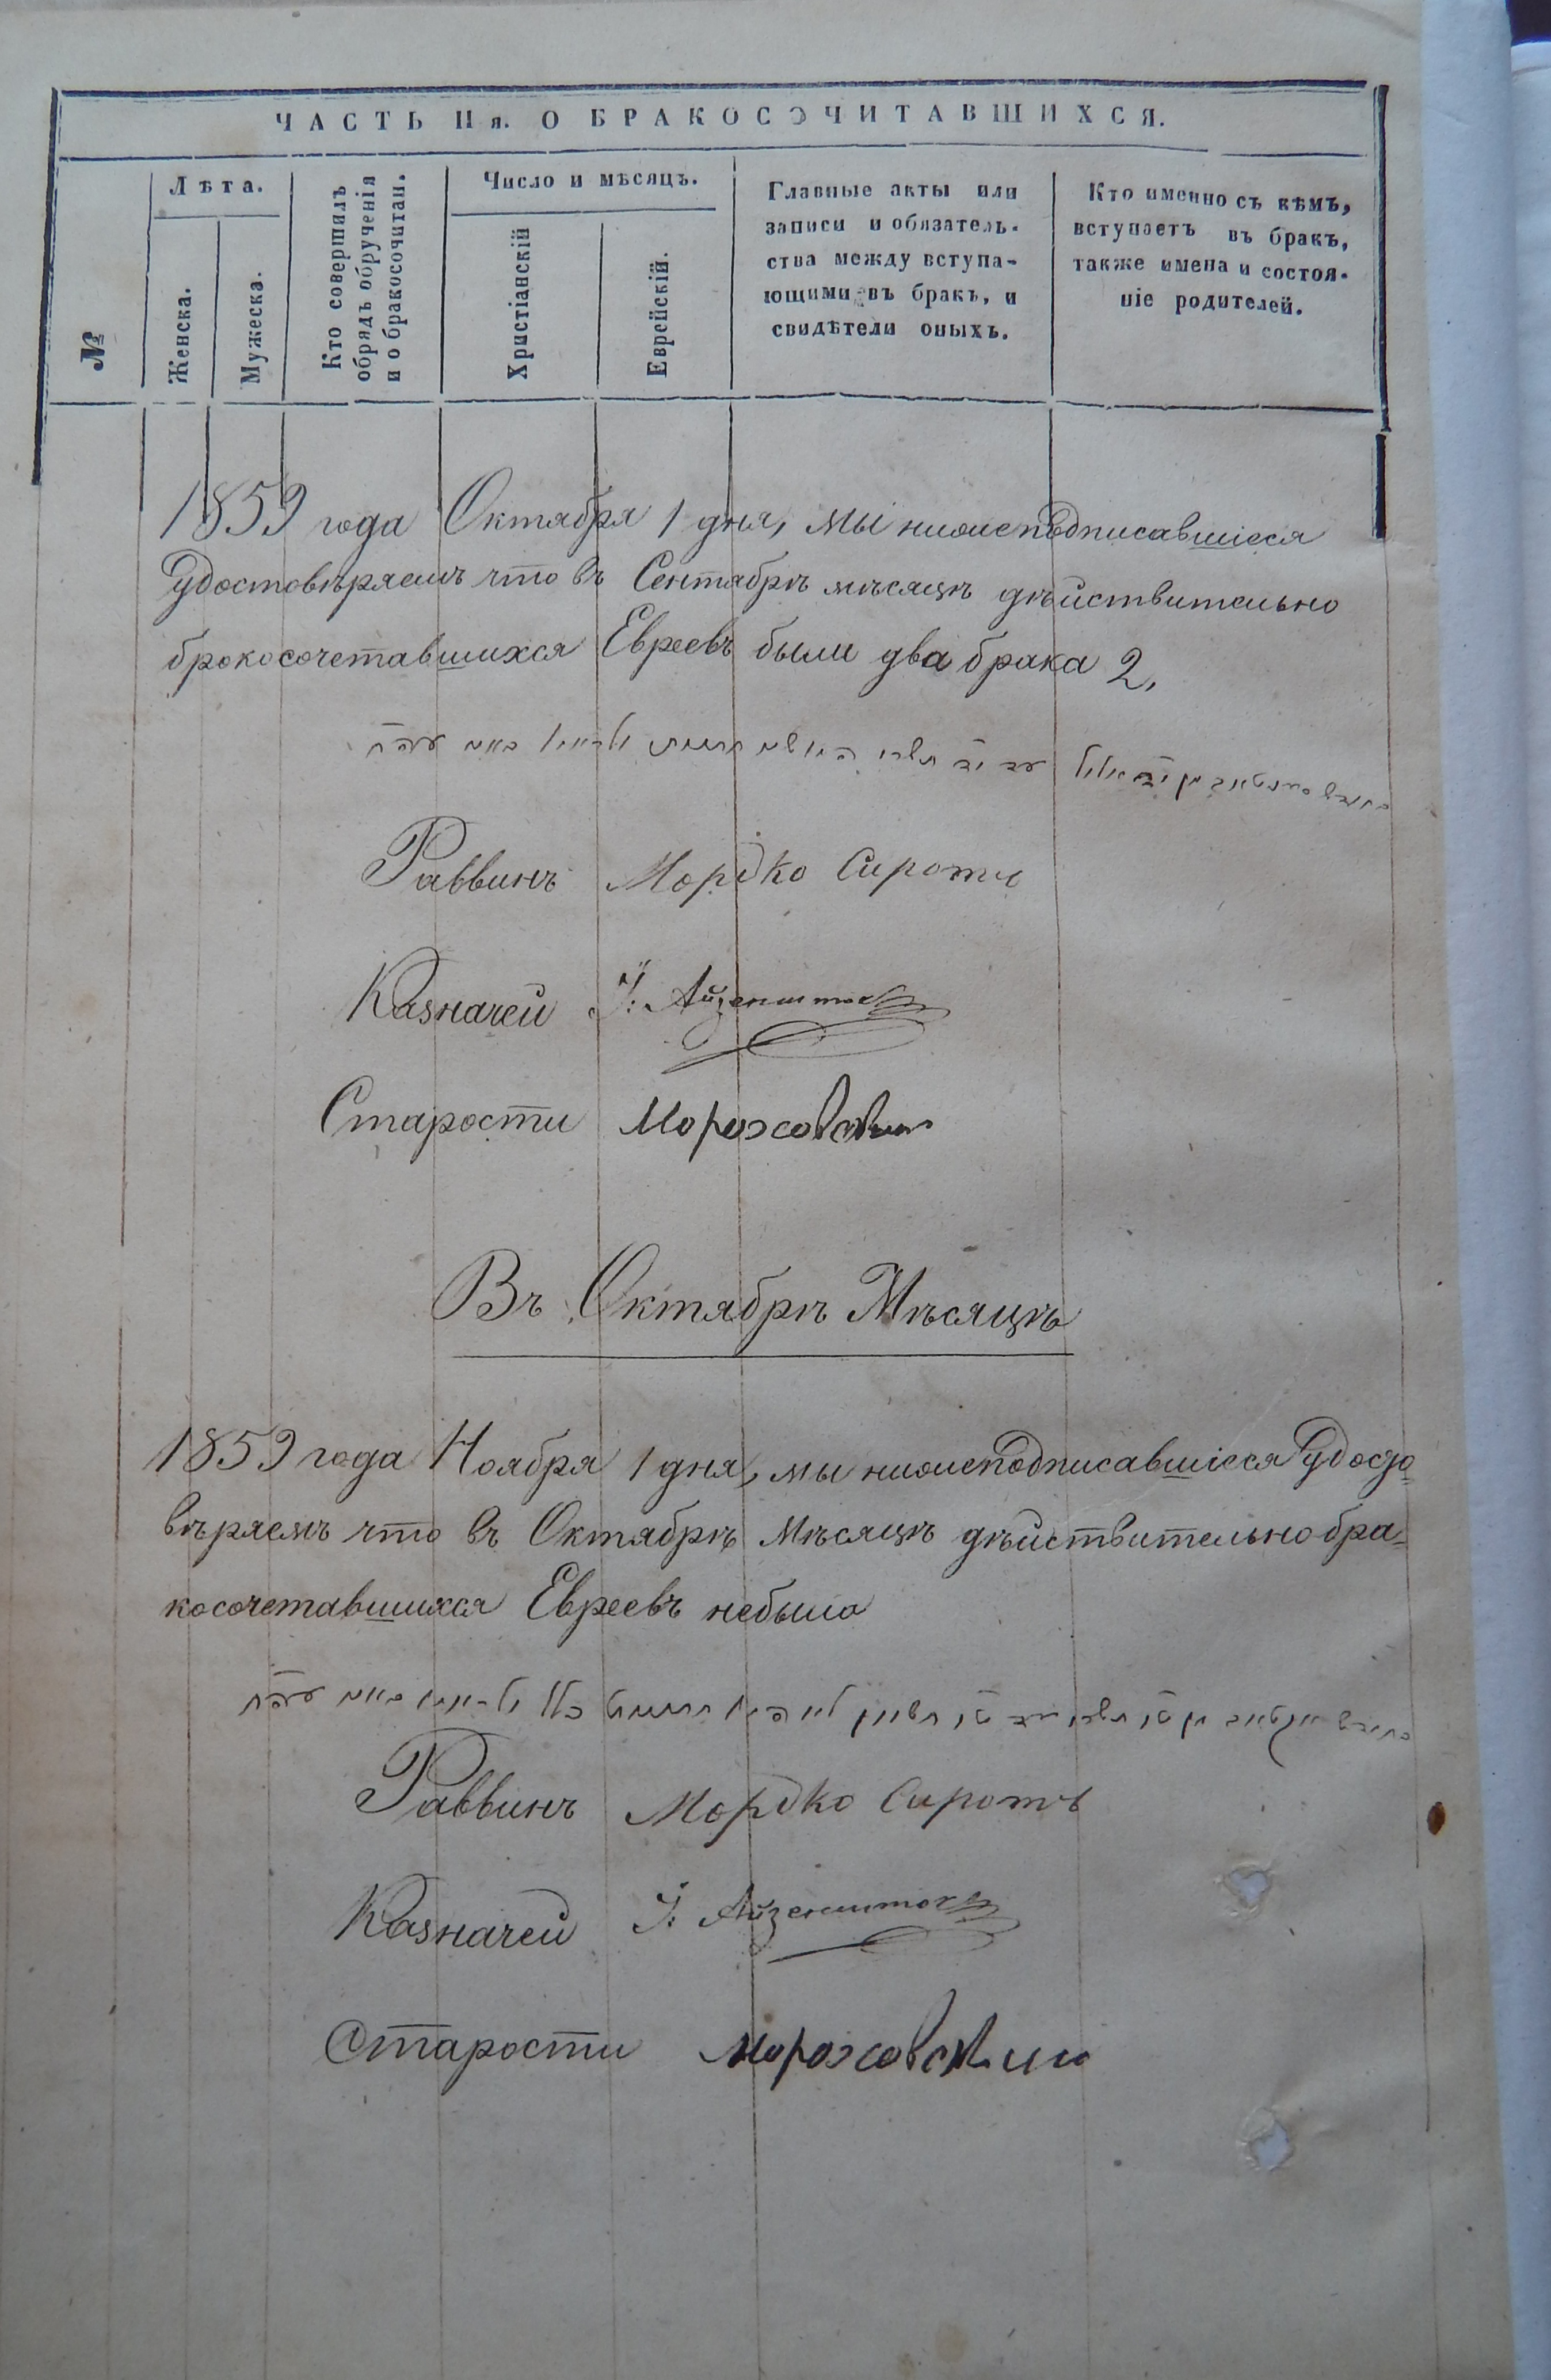 ЧАСТЬ II я. О БРАКОСОЧИТАВШИХСЯ.
№
Лѣта.
Женска.
Мужеска.
Кто совершилъ
обрядъ обрученія
и о бракосочитан.
Число и мѣсяцъ.
Христіанскій
Еврейскій.
Главные акты или
записи и обязатель-
ства между вступа-
ющими въ бракъ, и
свидѣтели оныхъ.
Кто именно съ кѣмъ,
вступаетъ въ бракъ,
также имена и состоя-
ніе родителей.
1859 года Октября 1 дня, мы нижеподписавшіеся
удостовѣряемъ что въ Сентябрѣ мѣсяцѣ дѣйствительно
бракосочетавшихся Евреевъ были два брака 2,
Раввинъ Мордко Сирота
Казначей І: Айзенштокъ
Старости Мороховскій
Въ Октябрѣ Мѣсяцѣ
1859 года Ноября 1 дня, мы нижеподписавшіеся Удосто=
вѣряемъ что въ Октябрѣ Мѣсяцѣ дѣйствительно бра=
косочетавшихся Евреевъ небыло
Раввинъ Мордко Сирота
Казначей І: Айзенштокъ
Старости Мороховскій